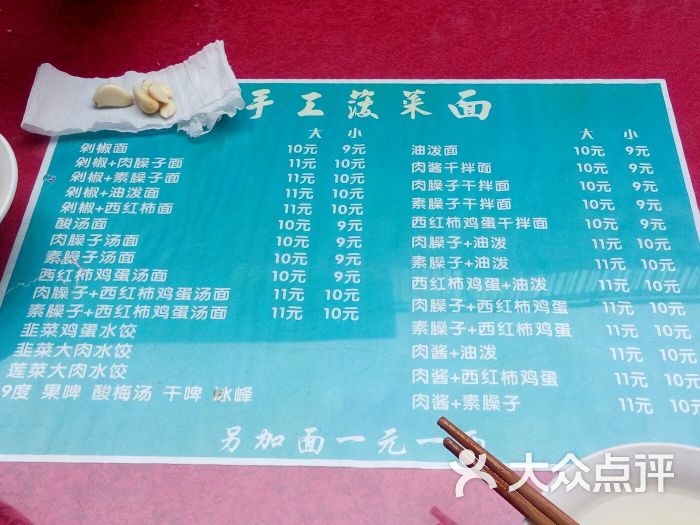 手工菠菜面
大 小
剁椒面 10元 9元
剁椒+肉臊子面 11元 10元
剁椒+素臊子面 11元 10元
剁椒+油泼面 11元 10元
剁椒+西红柿面 11元 10元
酸汤面 10元 9元
肉臊子汤面 10元 9元
素臊子汤面 10元 9元
西红柿鸡蛋汤面 10元 9元
肉臊子+西红柿鸡蛋汤面 11元 10元
素臊子+西红柿鸡蛋汤面 11元 10元
韭菜鸡蛋水饺
韭菜大肉水饺
莲菜大肉水饺
9度 果啤 酸梅汤 干啤 冰峰
大 小
油泼面 10元 9元
肉酱干拌面 10元 9元
肉臊子干拌面 10元 9元
素臊子干拌面 10元 9元
西红柿鸡蛋干拌面 10元 9元
肉臊子+油泼 11元 10元
素臊子+油泼 11元 10元
西红柿鸡蛋+油泼 11元 10元
肉臊子+西红柿鸡蛋 11元 10元
素臊子+西红柿鸡蛋 11元 10元
肉酱+油泼 11元 10元
肉酱+西红柿鸡蛋 11元 10元
肉酱+素臊子 11元 10元
另加面一元一
大众点评